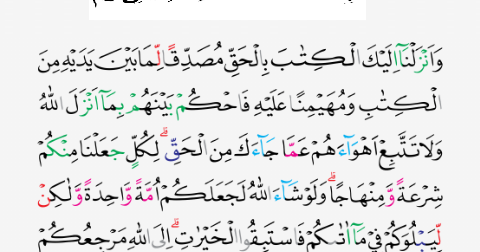 وَاَنْزَلْنَاۤ اِلَيْكَ الْـكِتٰبَ بِالْحَـقِّ مُصَدِّقًا لِّمَا بَيْنَ يَدَيْهِ مِنَ
الْكِتٰبِ وَمُهَيْمِنًا عَلَيْهِ فَاحْكُمْ بَيْنَهُمْ بِمَاۤ اَنْزَلَ اللّٰهُ
وَلَا تَتَّبِعْ اَهْوَآءَهُمْ عَمَّا جَآءَكَ مِنَ الْحَـقِّ ؕ لِكُلٍّ جَعَلْنَا مِنْكُمْ
شِرْعَةً وَّمِنْهَاجًا ؕ وَلَوْ شَآءَ اللّٰهُ لَجَـعَلَـكُمْ اُمَّةً وَّاحِدَةً وَّلٰـكِنْ
لِّيَبْلُوَكُمْ فِىْ مَاۤ اٰتٰٮكُمْ فَاسْتَبِقُوا الْخَـيْـرٰتِ ؕ اِلَى اللّٰهِ مَرْجِعُكُمْ